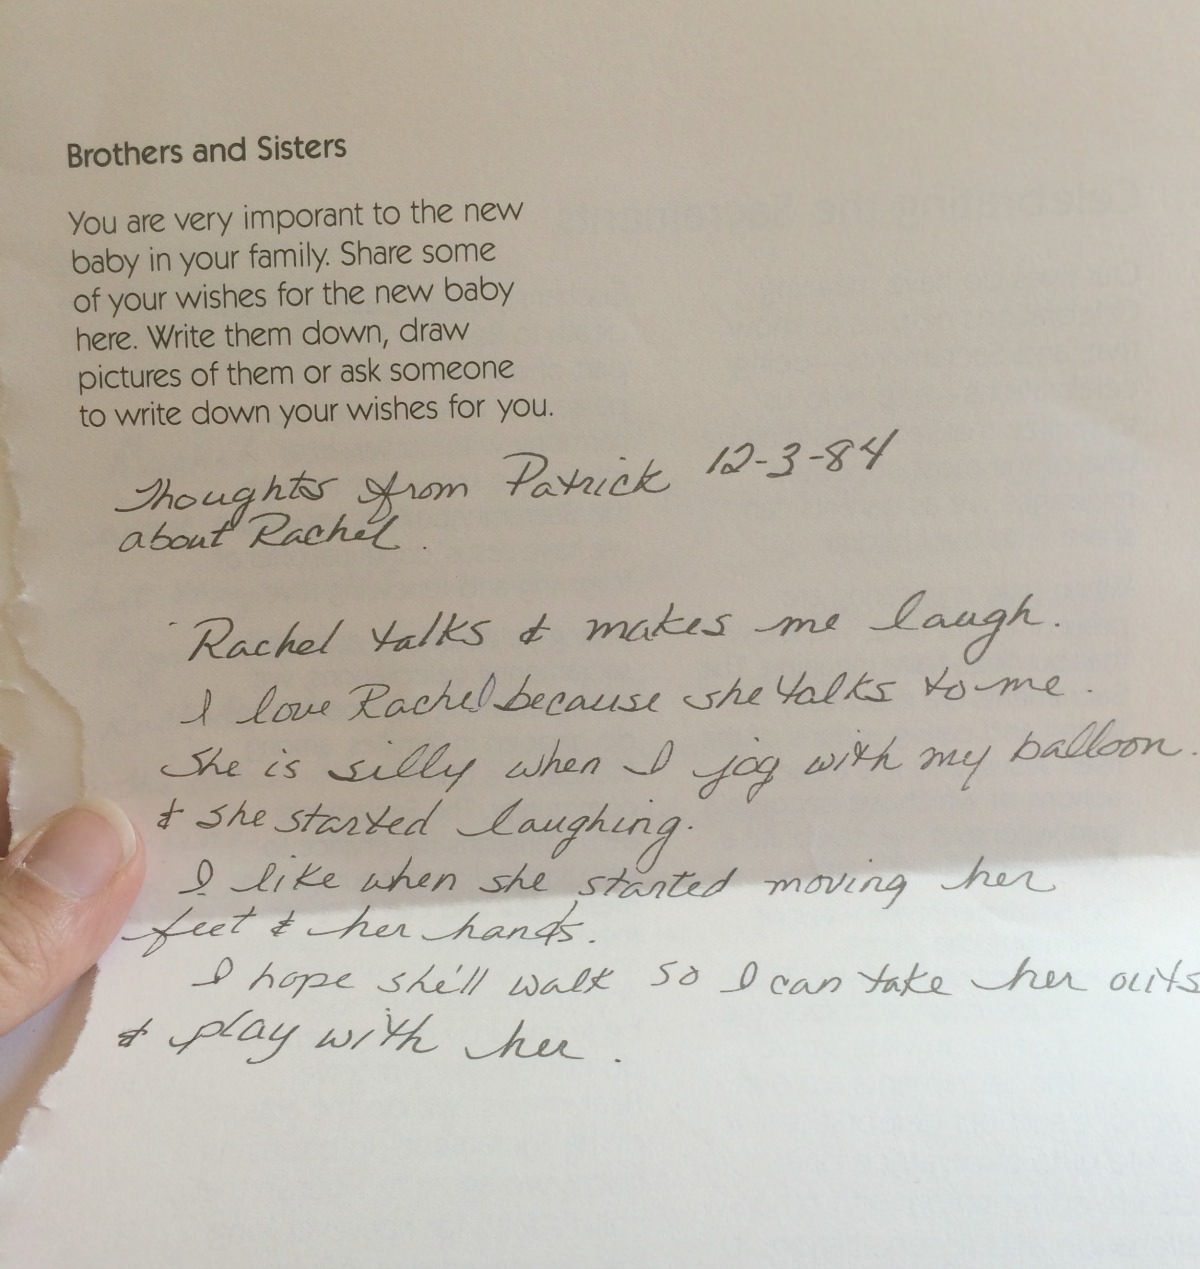 Brothers and Sisters
You are very imporant to the new
baby in your family. Share some
of your wishes for the new baby
here. Write them down, draw
pictures of them or ask someone
to write down your wishes for you.
Thoughts from Patrick 12-3-84
about Rachel.
Rachel talks & makes me laugh.
I love Rachel because she talks to me.
She is silly when I jog with my balloon.
& she started laughing.
I like when she started moving her
feet & her hands.
I hope she'll walk so I can take her outs
& play with her.